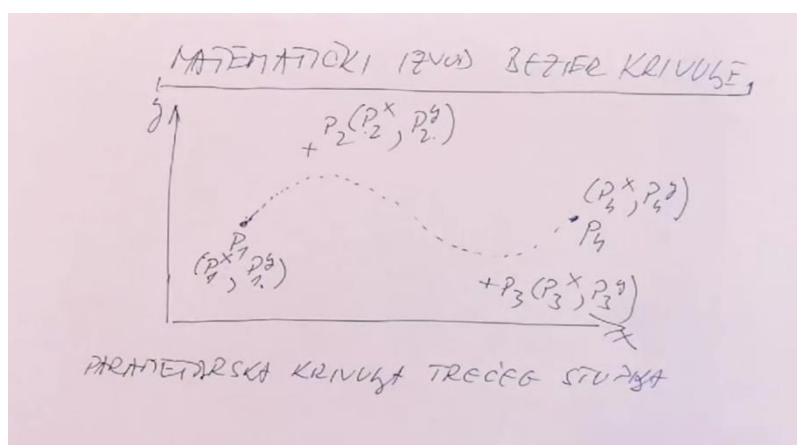 MATEMATIČKI IZVOD BEZIER KRIVULJE,
y
P2(P2^x, P2^y)
(P4^x, P4^y)
P4
P1
(P1^x, P1^y)
P3(P3^x, P3^y)
x
PARAMETARSKA KRIVULJA TREĆEG STUPNJA